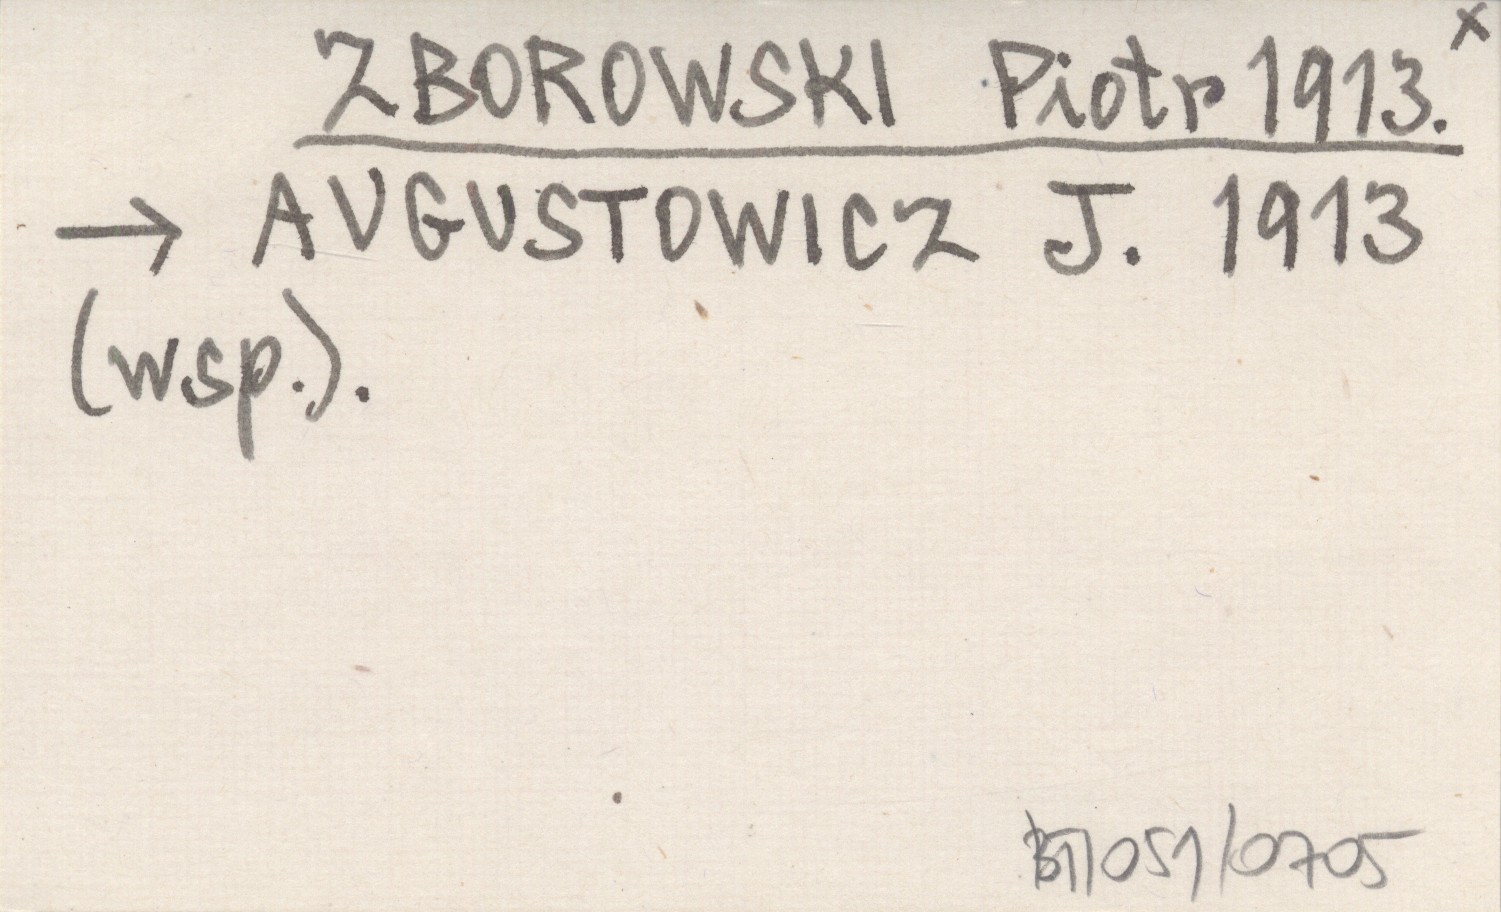 ZBOROWSKI Piotr 1913.x
→ AUGUSTOWICZ J. 1913
(wsp.).
BT/051/0705